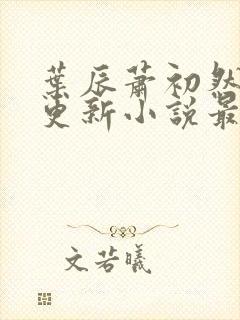 葉辰蕭初然
更新小說最
文若曦